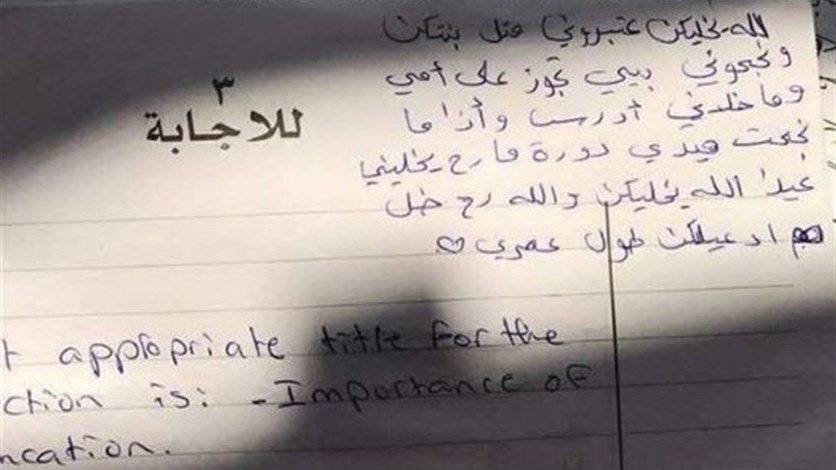 الله يخليكن عتبروني متل بنتكن
ونجحوني بيي تجوز على أمي
وما خلاني أدرس وأذا ما
نجحت هيدي دورة ما رح يخليني
عيدا الله يخليكن والله رح ضل
ادعيلكن طول عمري ♡
٣
للاجابة
t appropriate title for the
ction is: - Importance of
ucation.